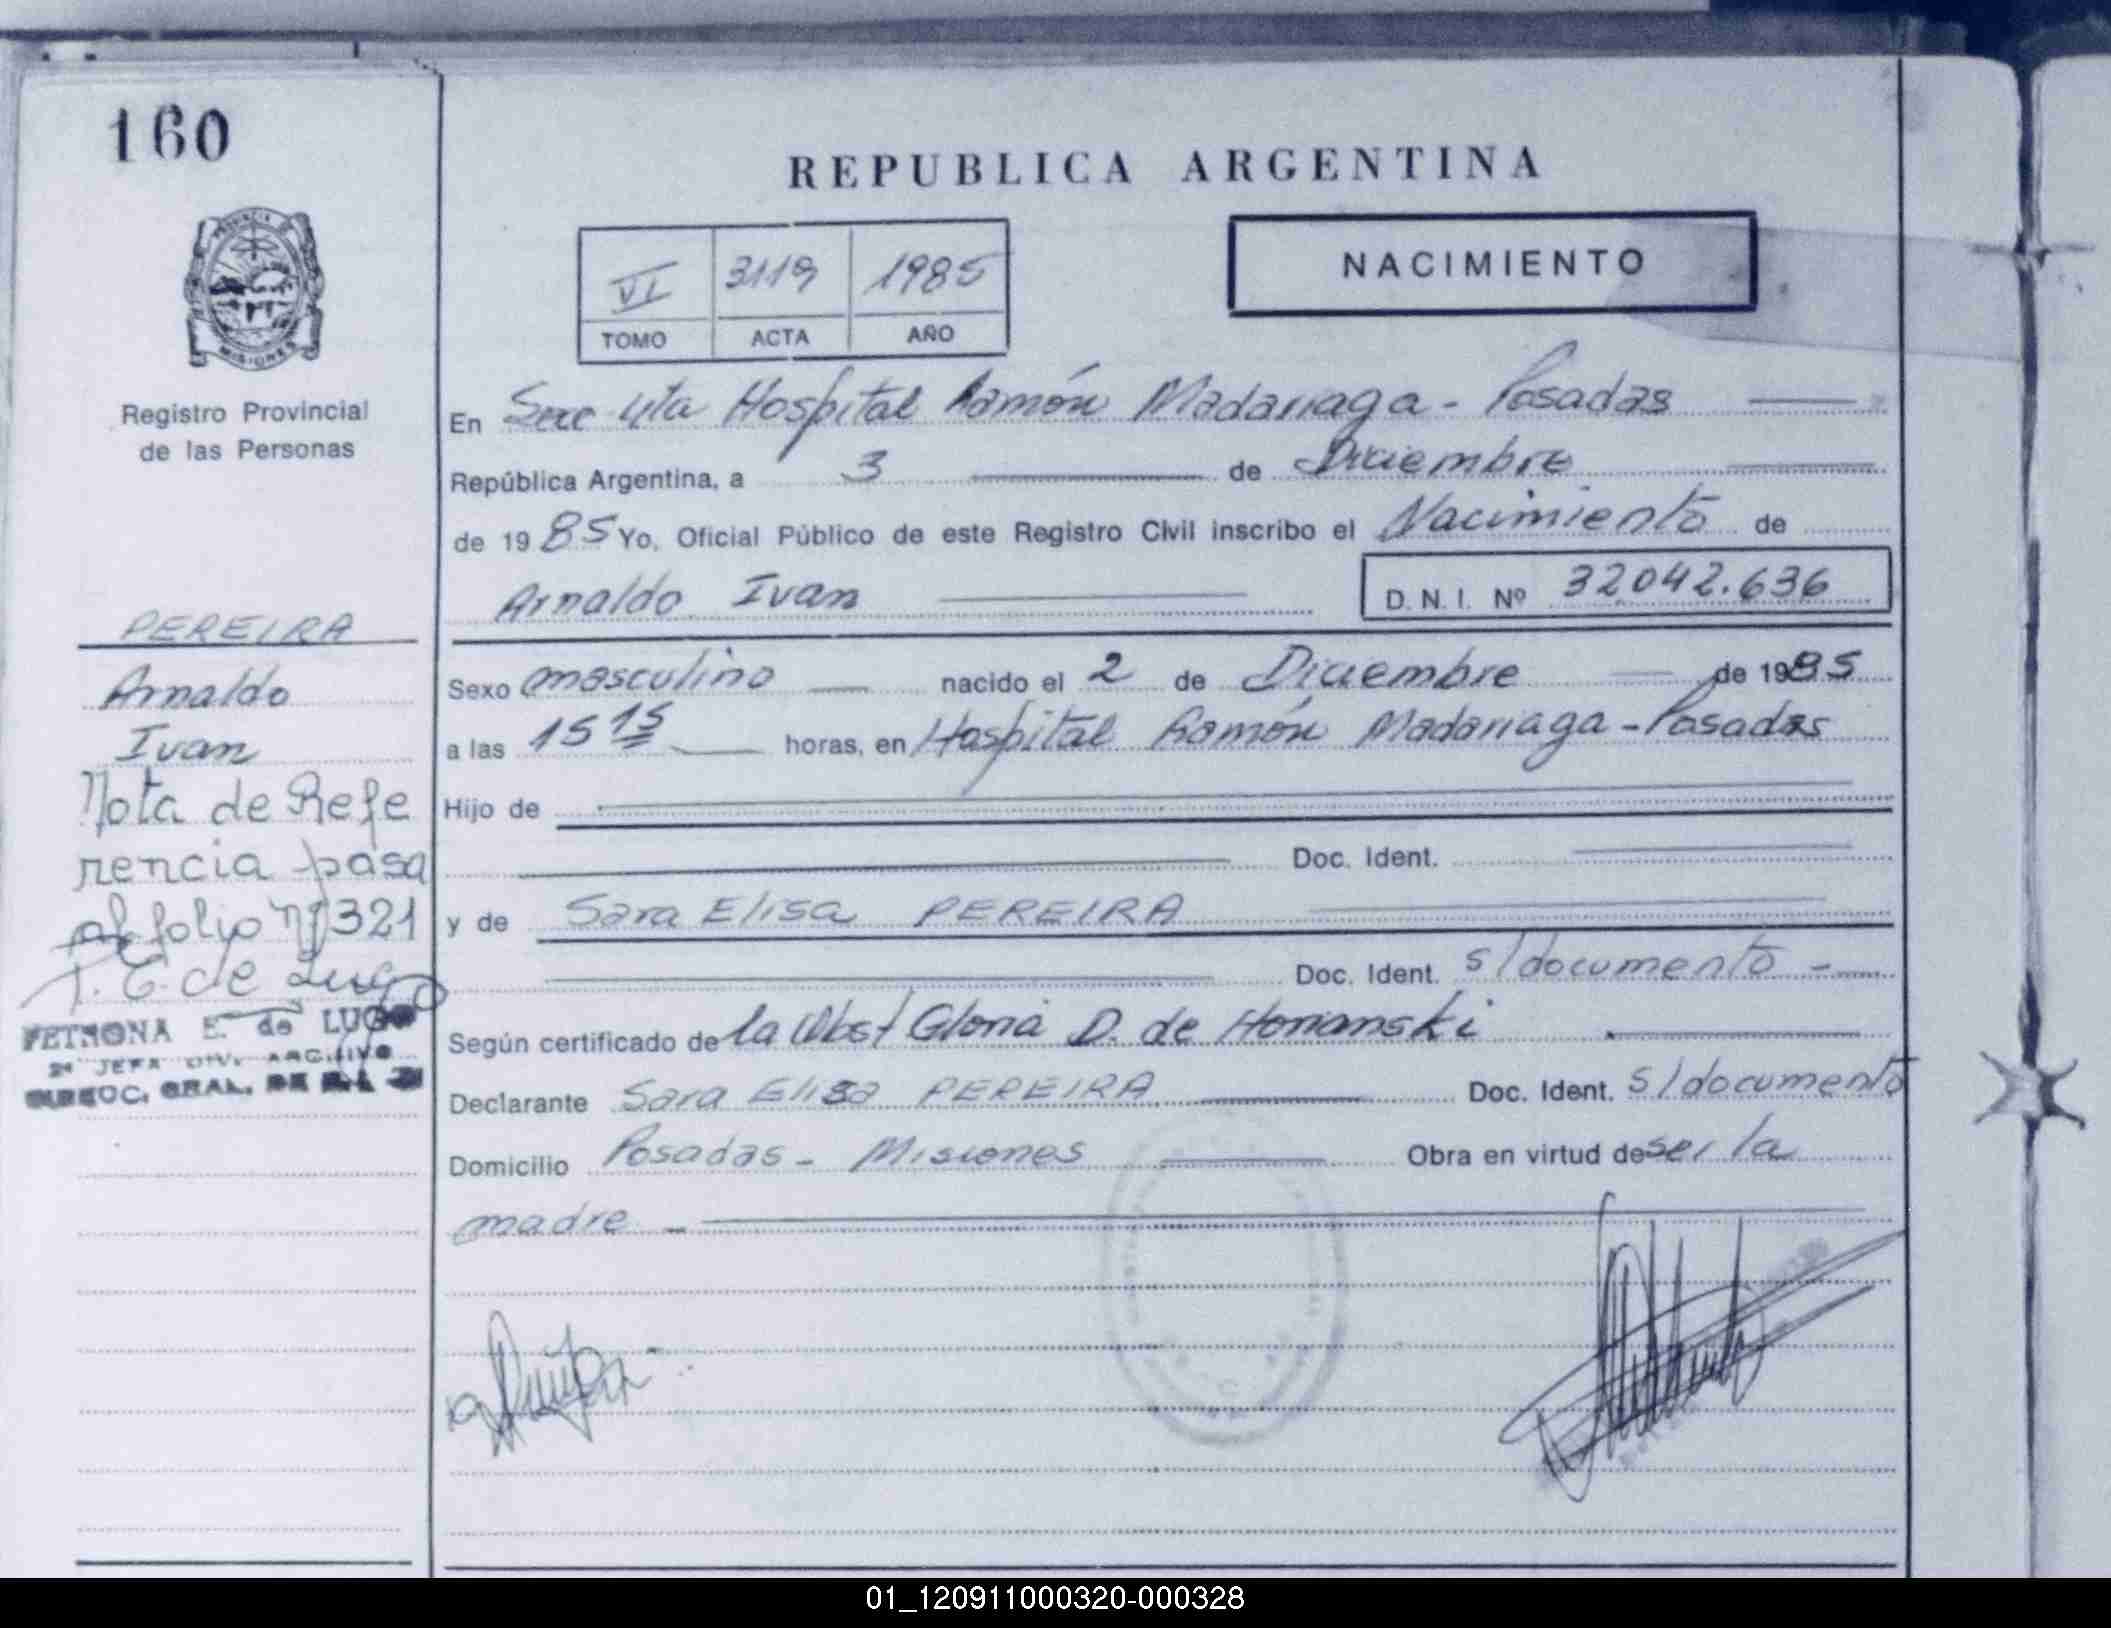 160
REPUBLICA ARGENTINA
VI 3119 1985
TOMO ACTA AÑO
NACIMIENTO
MISIONES
Registro Provincial
de las Personas
En Secc 4ta Hospital Ramón Madariaga - Posadas
República Argentina, a 3 de Diciembre
de 1985 Yo, Oficial Público de este Registro Civil inscribo el Nacimiento de
Arnaldo Ivan D. N. I. Nº 32042.636
PEREIRA
Arnaldo
Ivan
Nota de Refe
rencia pasa
al folio nº 321
P. E. de Lugo
PETRONA E. de LUGO
2ª JEFA DIV. ARCHIVO
GRAL. DE
Sexo masculino nacido el 2 de Diciembre de 1985
a las 15 15 horas, en Hospital Ramón Madariaga - Posadas
Hijo de
Doc. Ident.
y de Sara Elisa PEREIRA
Doc. Ident. s/documento -
Según certificado de la Obst Gloria D. de Horianski
Declarante Sara Elisa PEREIRA Doc. Ident. s/documento
Domicilio Posadas - Misiones Obra en virtud de ser la
madre -
01_120911000320-000328